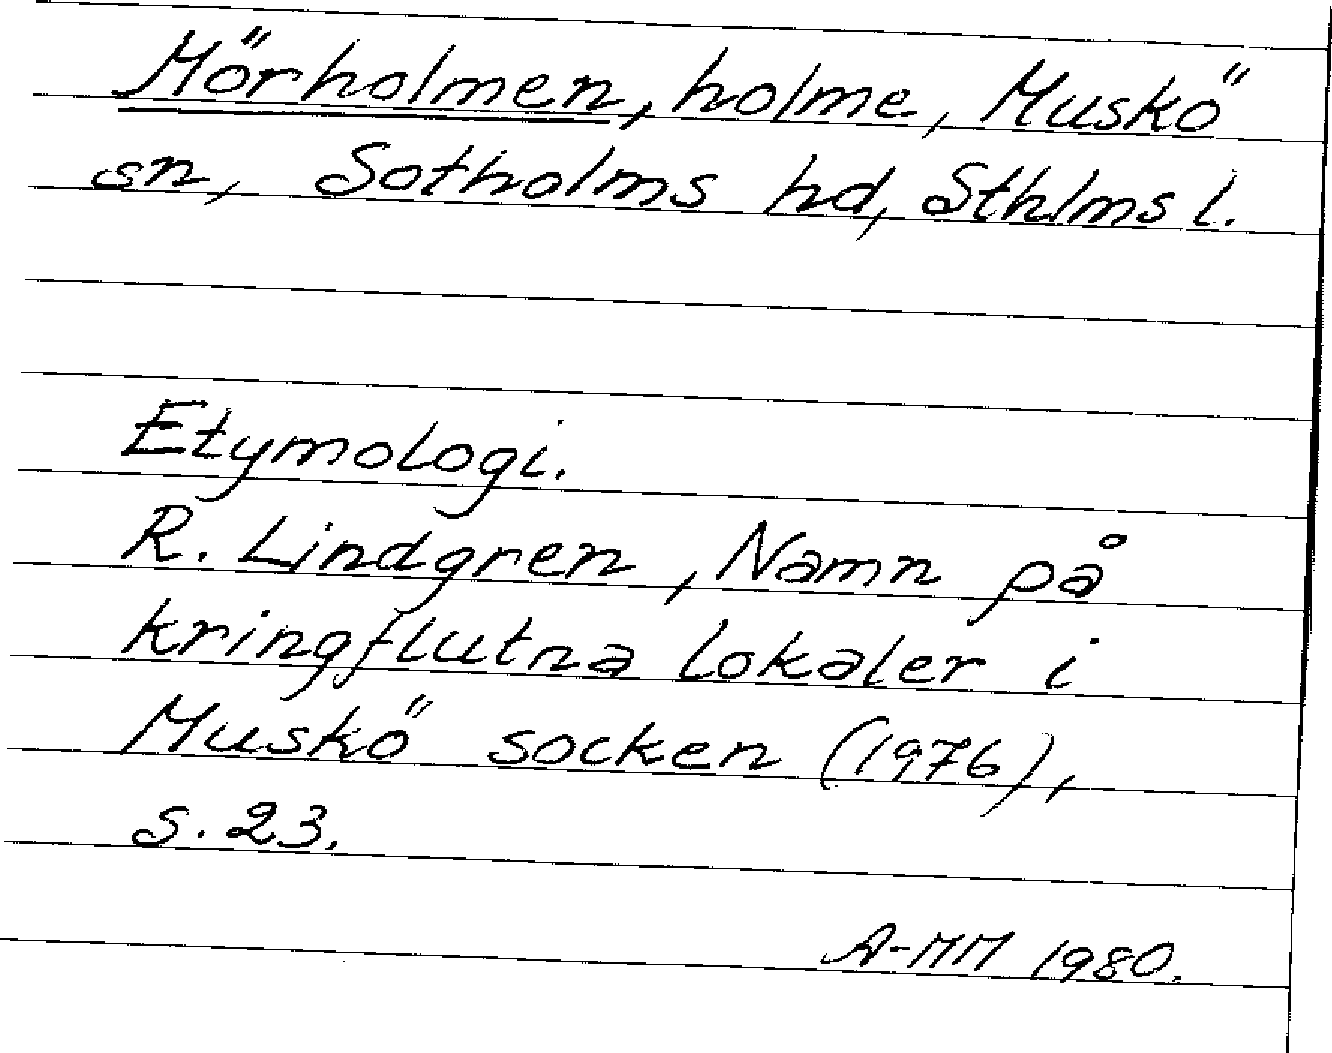 Mörholmen, holme, Muskö
sn, Sotholms hd, Sthlms l.
Etymologi.
R. Lindgren, Namn på
kringflutna lokaler i
Muskö socken (1976),
s. 23.
A-MM 1980.